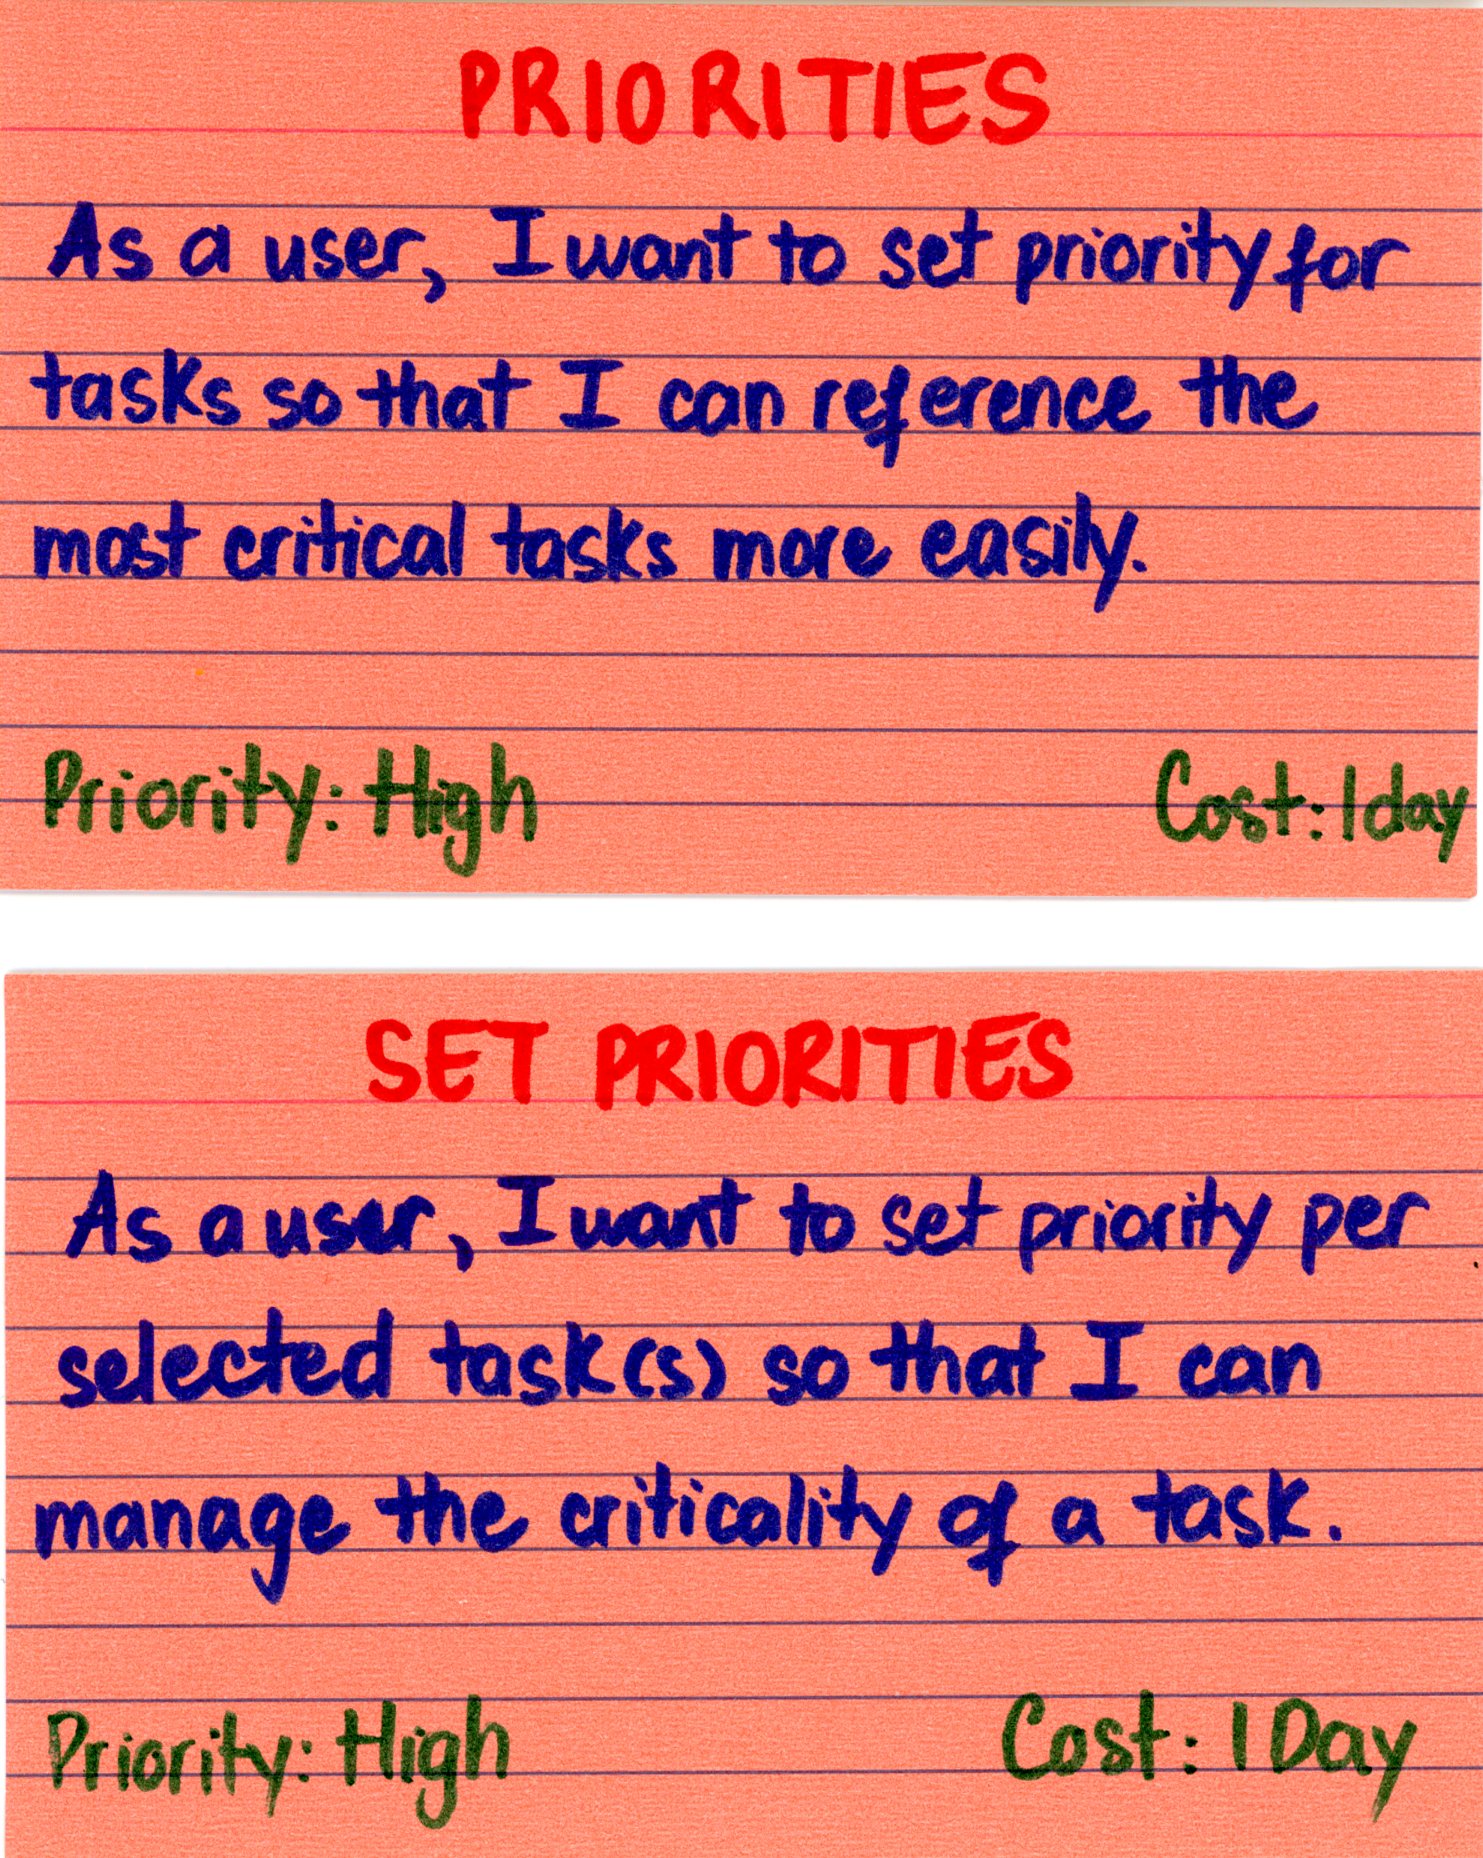 PRIORITIES
As a user, I want to set priority for
tasks so that I can reference the
most critical tasks more easily.
Priority: High
Cost: 1day
SET PRIORITIES
As a user, I want to set priority per
selected task(s) so that I can
manage the criticality of a task.
Priority: High
Cost: 1 Day